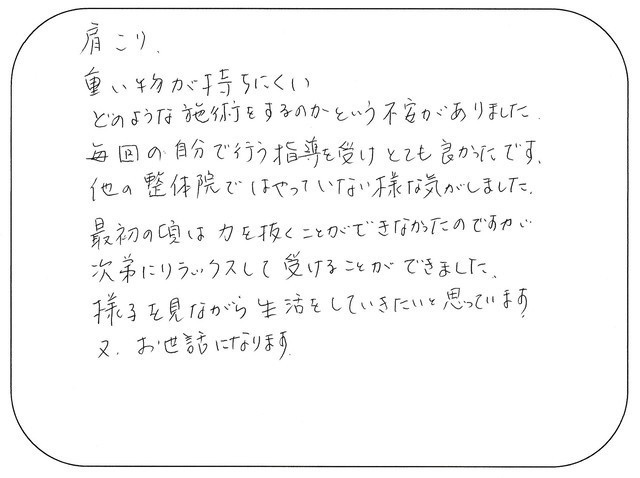 肩こり.
重い物が持ちにくい
どのような施術をするのかという不安がありました.
毎回の自分で行う指導を受けとても良かったです.
他の整体院ではやっていない様な気がしました.
最初の頃は力を抜くことができなかったのですが
次第にリラックスして受けることができました.
様子を見ながら生活をしていきたいと思っています.
又、お世話になります.